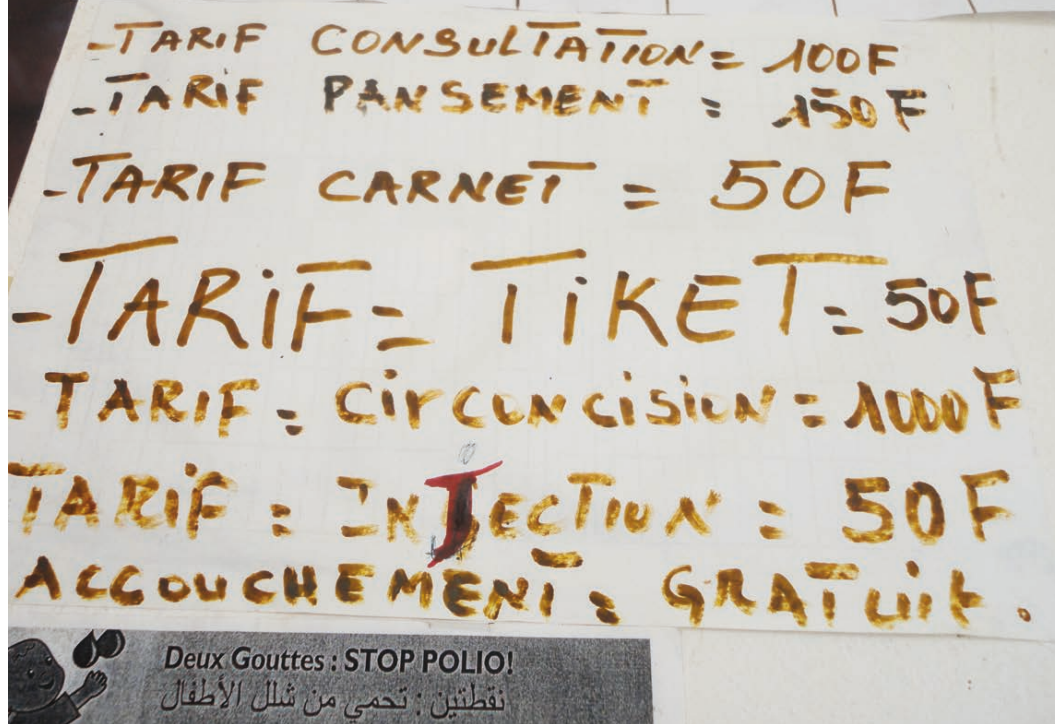 -TARIF CONSULTATION= 100F
-TARIF PANSEMENT : 150F
-TARIF CARNET = 50F
-TARIF= TIKET= 50F
-TARIF= CIRCONCISION= 1000F
TARIF= INJECTION= 50F
ACCOUCHEMENT= GRATUIT.
Deux Gouttes : STOP POLIO!
نقطتين : تحمي من شلل الأطفال